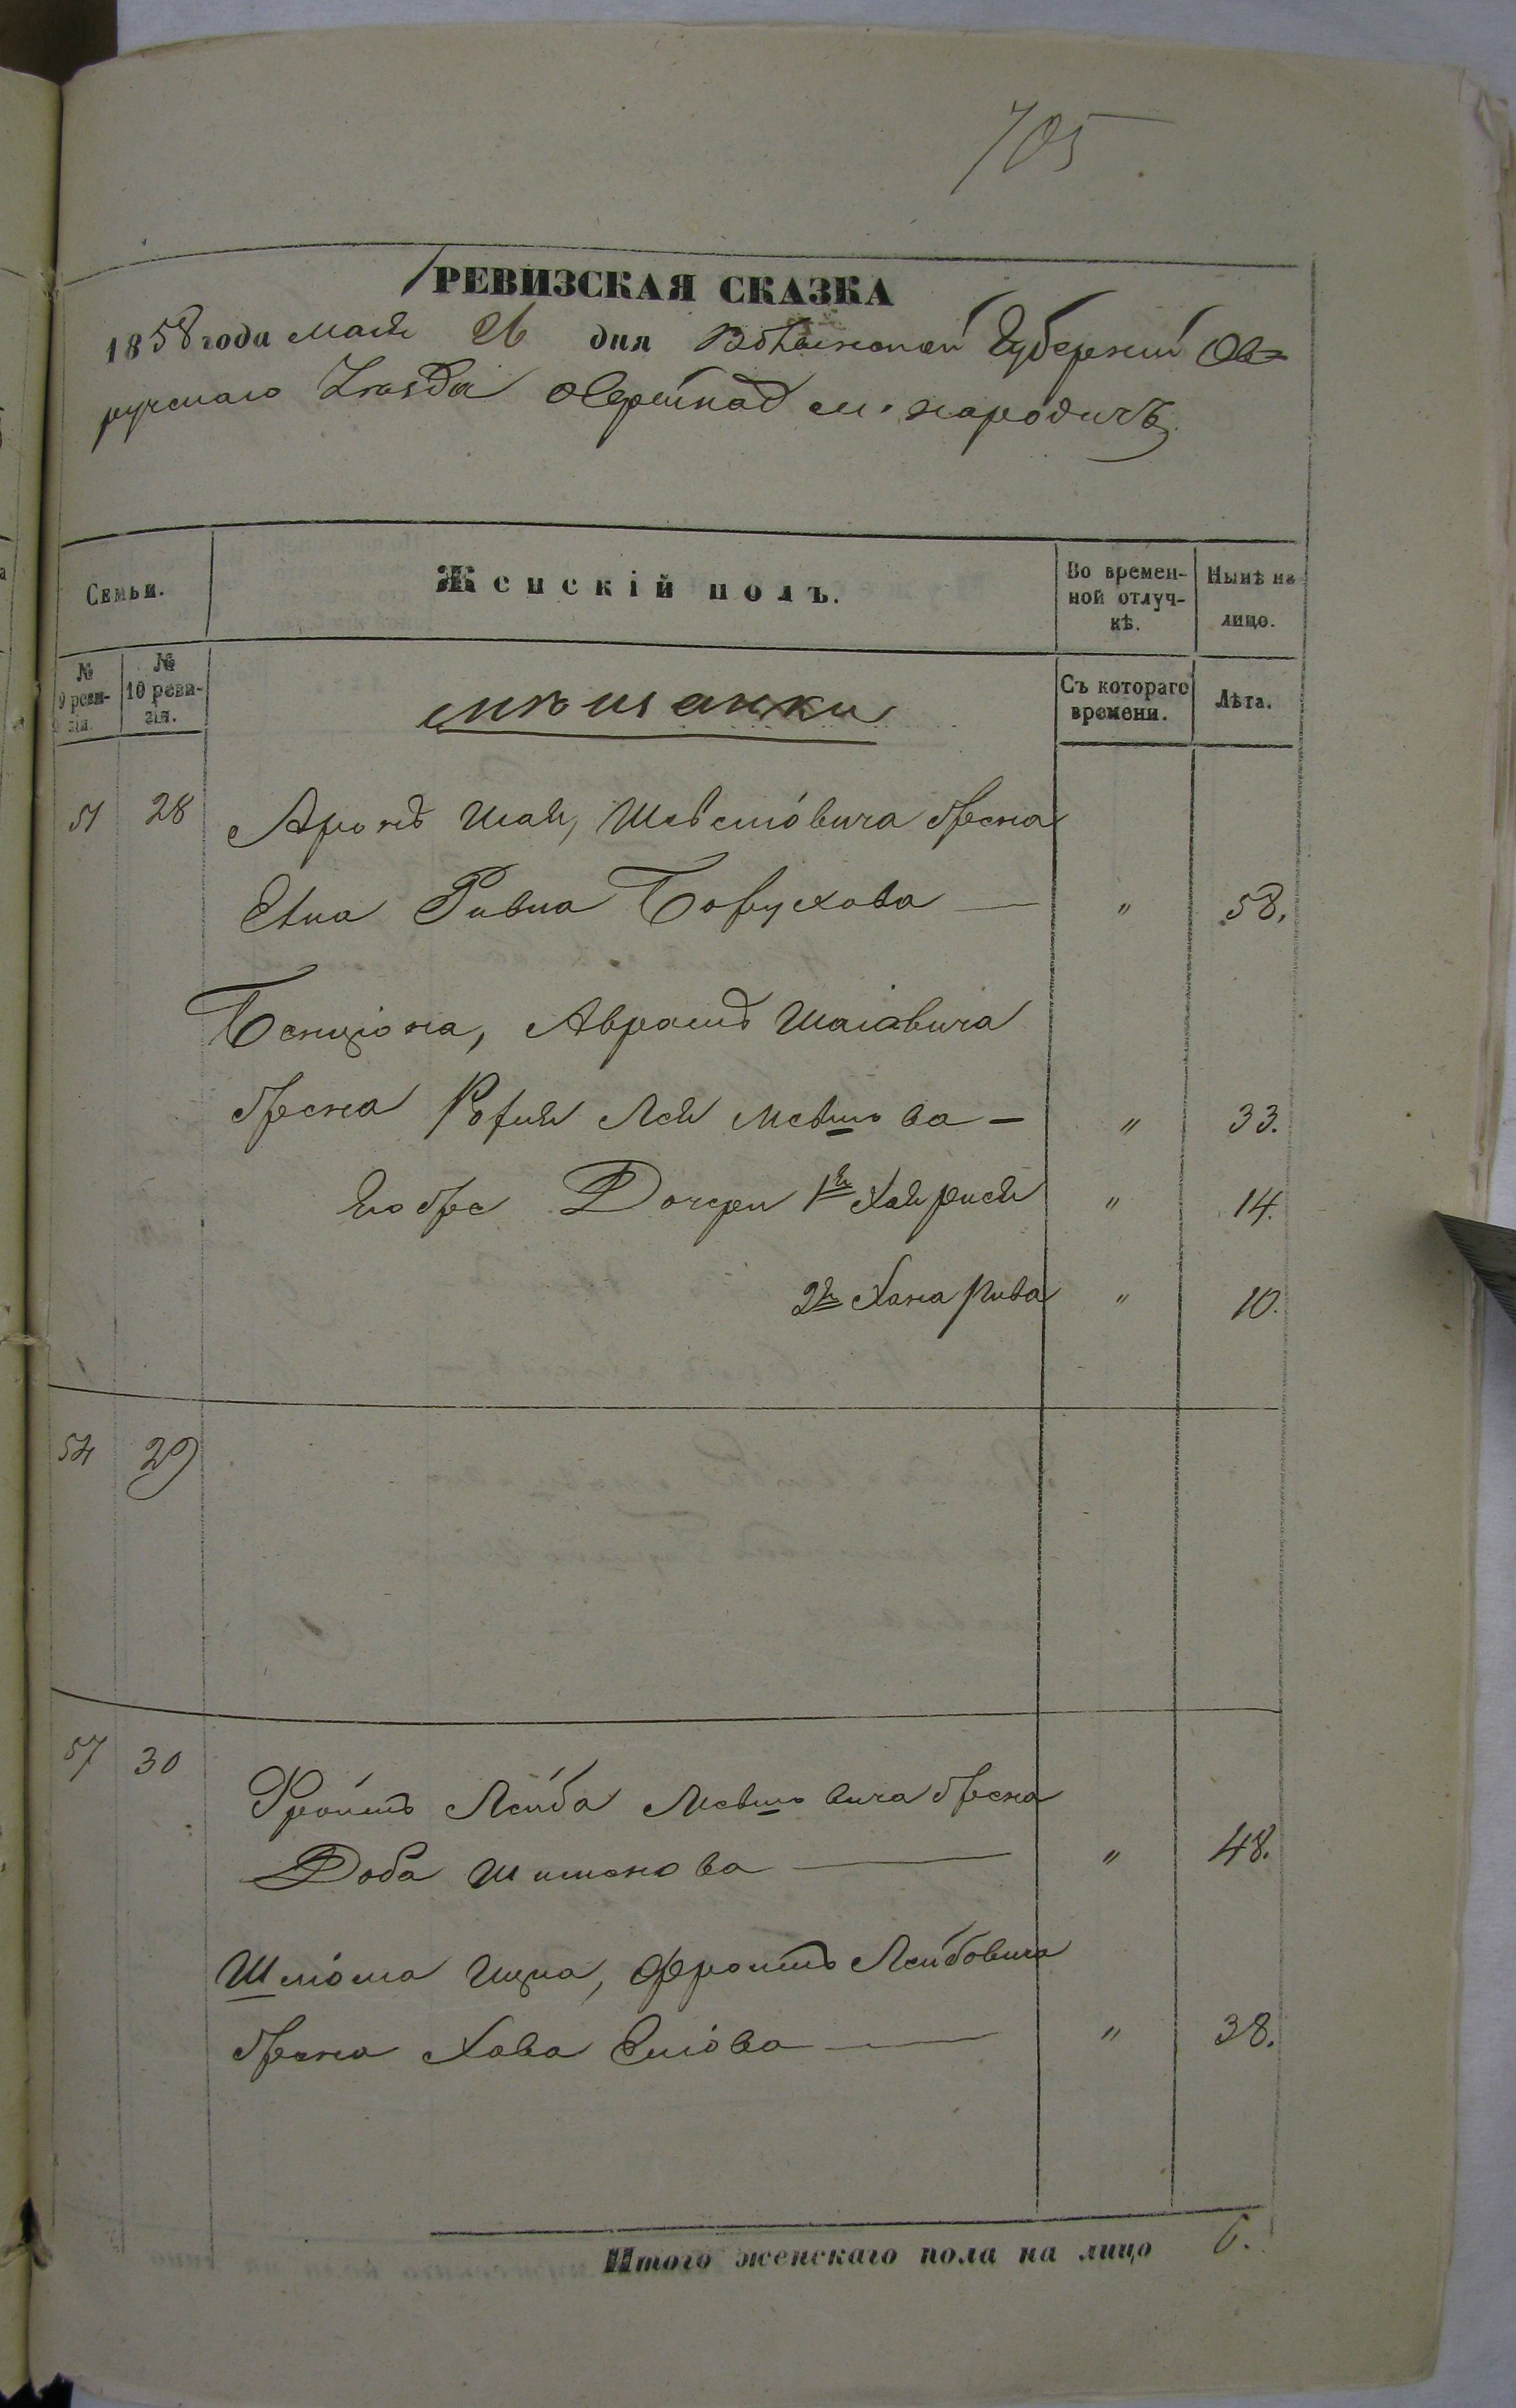 705
РЕВИЗСКАЯ СКАЗКА
1858 года мая 26 дня Волынской Губернии Ов=
ручскаго Уезда Евреинов м. народичъ
Семьи.
Женскій полъ.
Во времен-
ной отлуч-
кѣ.
Нынѣ на
лицо.
№
9 реви-
зіи.
№
10 реви-
зіи.
мѣщанки
Съ котораго
времени.
Лѣта.
51 28 Аронъ Шая, жена
Ривка Борухова — " 58.
Бенціона, Аврамъ Шаiовича
жена Лея Мевшова — " 33.
Его же Дочери 1я Хая " 14.
2я Хана Рива " 10.
54 29
57 30
Фроимъ Лейба Мевшовича жена
Доба Шимонова — " 48.
Шліома Ицка, Фроимъ Лейбовича
жена Хава — " 38.
Итого женскаго пола на лицо 6.